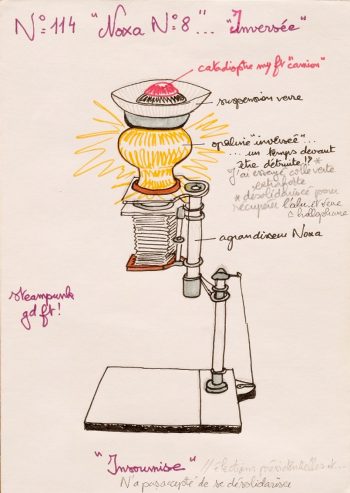 N°: 114 "Noxa N°: 8"... "Inversée"
catadioptre my ft "camion"
suspension verre
opaline "inversée"...
... un temps devant
être détruite!?*
j'ai essayé colle verte
extraforte
* désolidarisé pour
récupérer
agrandisseur Noxa
steampunk
gd ft!
"Insoumise" // élections présidentielles
N'a pas accepté de se désolidariser